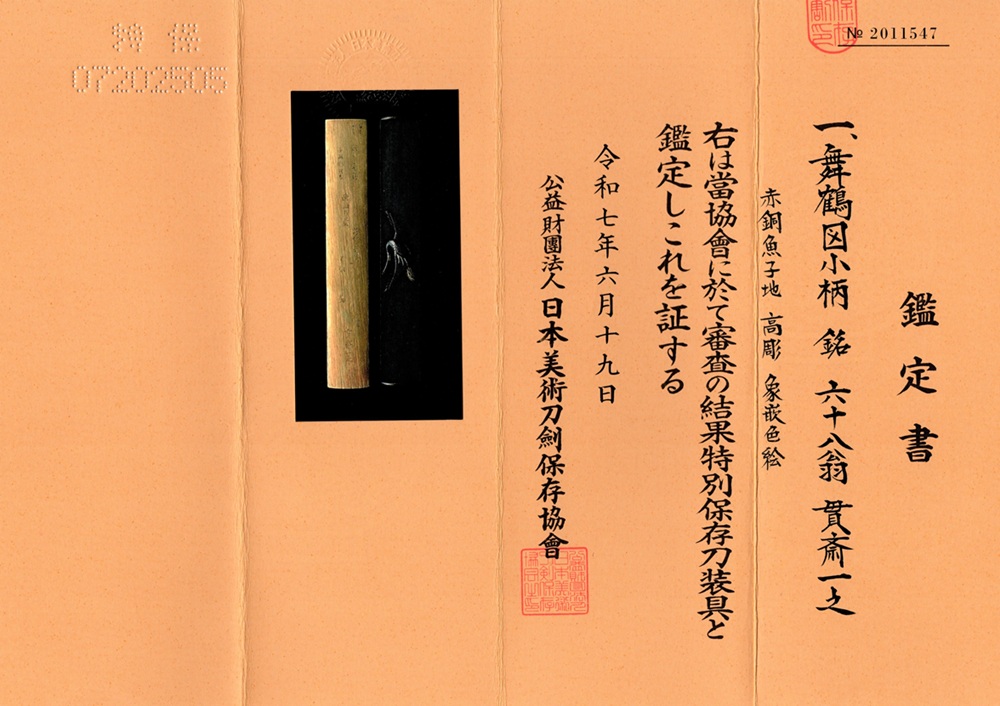 № 2011547
鑑定書
一、舞鶴図小柄 銘 六十八翁 貫斎一之
赤銅魚子地 高彫 象嵌色絵
右は當協會に於て審査の結果特別保存刀装具と
鑑定しこれを証する
令和七年六月十九日
公益財團法人 日本美術刀劍保存協會
特保
07202505